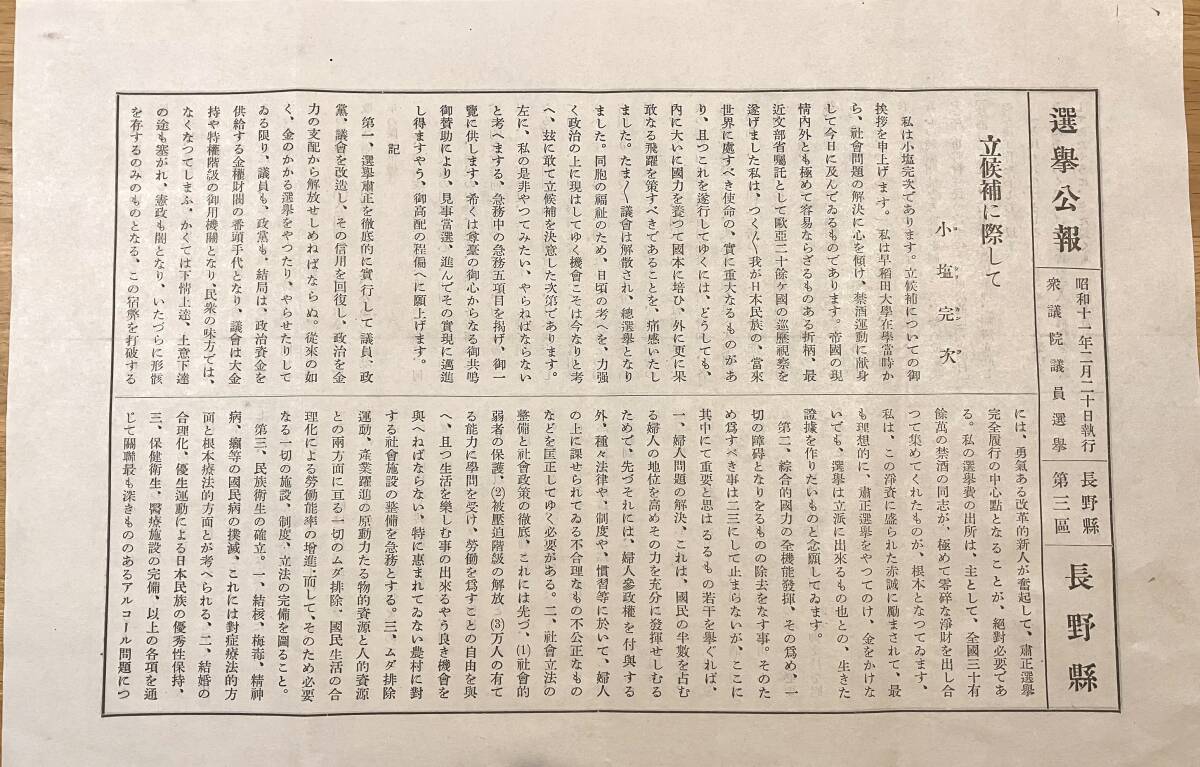 選擧公報
昭和十一年二月二十日執行
衆議院議員選擧
長野縣
第三區
長野縣
立候補に際して
小鹽完次
私は小塩完次であります。立候補についての御
挨拶を申上げます。私は早稲田大學在學當時か
ら、社會問題の解決に心を傾け、禁酒運動に献身
して今日に及んでゐるものであります。帝國の現
情内外とも極めて容易ならざるものある折柄、最
近文部省囑託として歐亞二十餘ケ國の巡歷視察を
遂げました私は、つく〴〵我が日本民族の、當來
世界に處すべき使命の、實に重大なるものがあ
り、且つこれを遂行してゆくには、どうしても、
内に大いに國力を養つて國本に培ひ、外に更に果
敢なる飛躍を策すべきであることを、痛感いたし
ました。たま〳〵議會は解散され、總選擧となり
ました。同胞の福祉のため、日頃の考へを、力强
く政治の上に現はしてゆく機會こそは今なりと考
へ、玆に敢て立候補を決意した次第であります。
左に、私の是非やつてみたい、やらねばならない
と考へまする、急務中の急務五項目を揭げ、御一
覽に供します、希くは尊臺の御心からなる御共鳴
御賛助により、見事當選、進んでその實現に邁進
し得ますやう、御高配の程偏へに願上げます。
記
第一、選擧肅正を徹底的に實行して議員、政
黨、議會を改造し、その信用を回復し、政治を金
力の支配から解放せしめねばならぬ。從來の如
く、金のかかる選擧をやつたり、やらせたりして
ゐる限り、議員も、政黨も、結局は、政治資金を
供給する金權財閥の番頭手代となり、議會は大金
持や特權階級の御用機關となり、民衆の味方では、
なくなつてしまふ、かくては下情上達、上意下達
の途も塞がれ、憲政も闇となり、いたづらに形骸
を存するのみのものとなる、この宿弊を打破する
には、勇氣ある改革的新人が奮起して、肅正選擧
完全履行の中心點となることが、絕對必要であ
る。私の選擧費の出所は、主として、全國三十有
餘萬の禁酒の同志が、極めて零碎な淨財を出し合
つて集めてくれたものが、根本となつてゐます、
私は、この淨資に盛られた赤誠に勵まされて、最
も理想的に、肅正選擧をやつてのけ、金をかけな
いでも、選擧は立派に出來るもの也との、生きた
證據を作りたいものと念願してゐます。
第二、綜合的國力の全機能發揮、その爲め、一
切の障碍となりをるものの除去をなす事。そのた
め爲すべき事は二三にして止まらないが、ここに
其中にて重要と思はるるもの若干を擧ぐれば、
一、婦人問題の解決、これは、國民の半數を占む
る婦人の地位を高めその力を充分に發揮せしむる
ためで、先づそれには、婦人參政權を付與する
外、種々法律や、制度や、慣習等に於いて、婦人
の上に課せられてゐる不合理なもの不公正なもの
などを匡正してゆく必要がある。二、社會立法の
整備と社會政策の徹底、これには先づ、(1)社會的
弱者の保護、(2)被壓迫階級の解放、(3)万人の有て
る能力に學問を受け、勞働を爲すことの自由を與
へ、且つ生活を樂しむ事の出來るやう良き機會を
與へねばならない、特に惠まれてゐない農村に對
する社會施設の整備を急務とする。三、ムダ排除
運動、產業躍進の原動力たる物的資源と人的資源
との兩方面に亘る一切のムダ排除、國民生活の合
理化による勞働能率の增進、而して、そのため必要
なる一切の施設、制度、立法の完備を圖ること。
第三、民族衞生の確立。一、結核、梅毒、精神
病、癩等の國民病の撲滅、これには對症療法的方
面と根本療法的方面とが考へられる、二、結婚の
合理化、優生運動による日本民族の優秀性保持、
三、保健衞生、醫療施設の完備、以上の各項を通
じて關聯最も深きもののあるアルコール問題につ